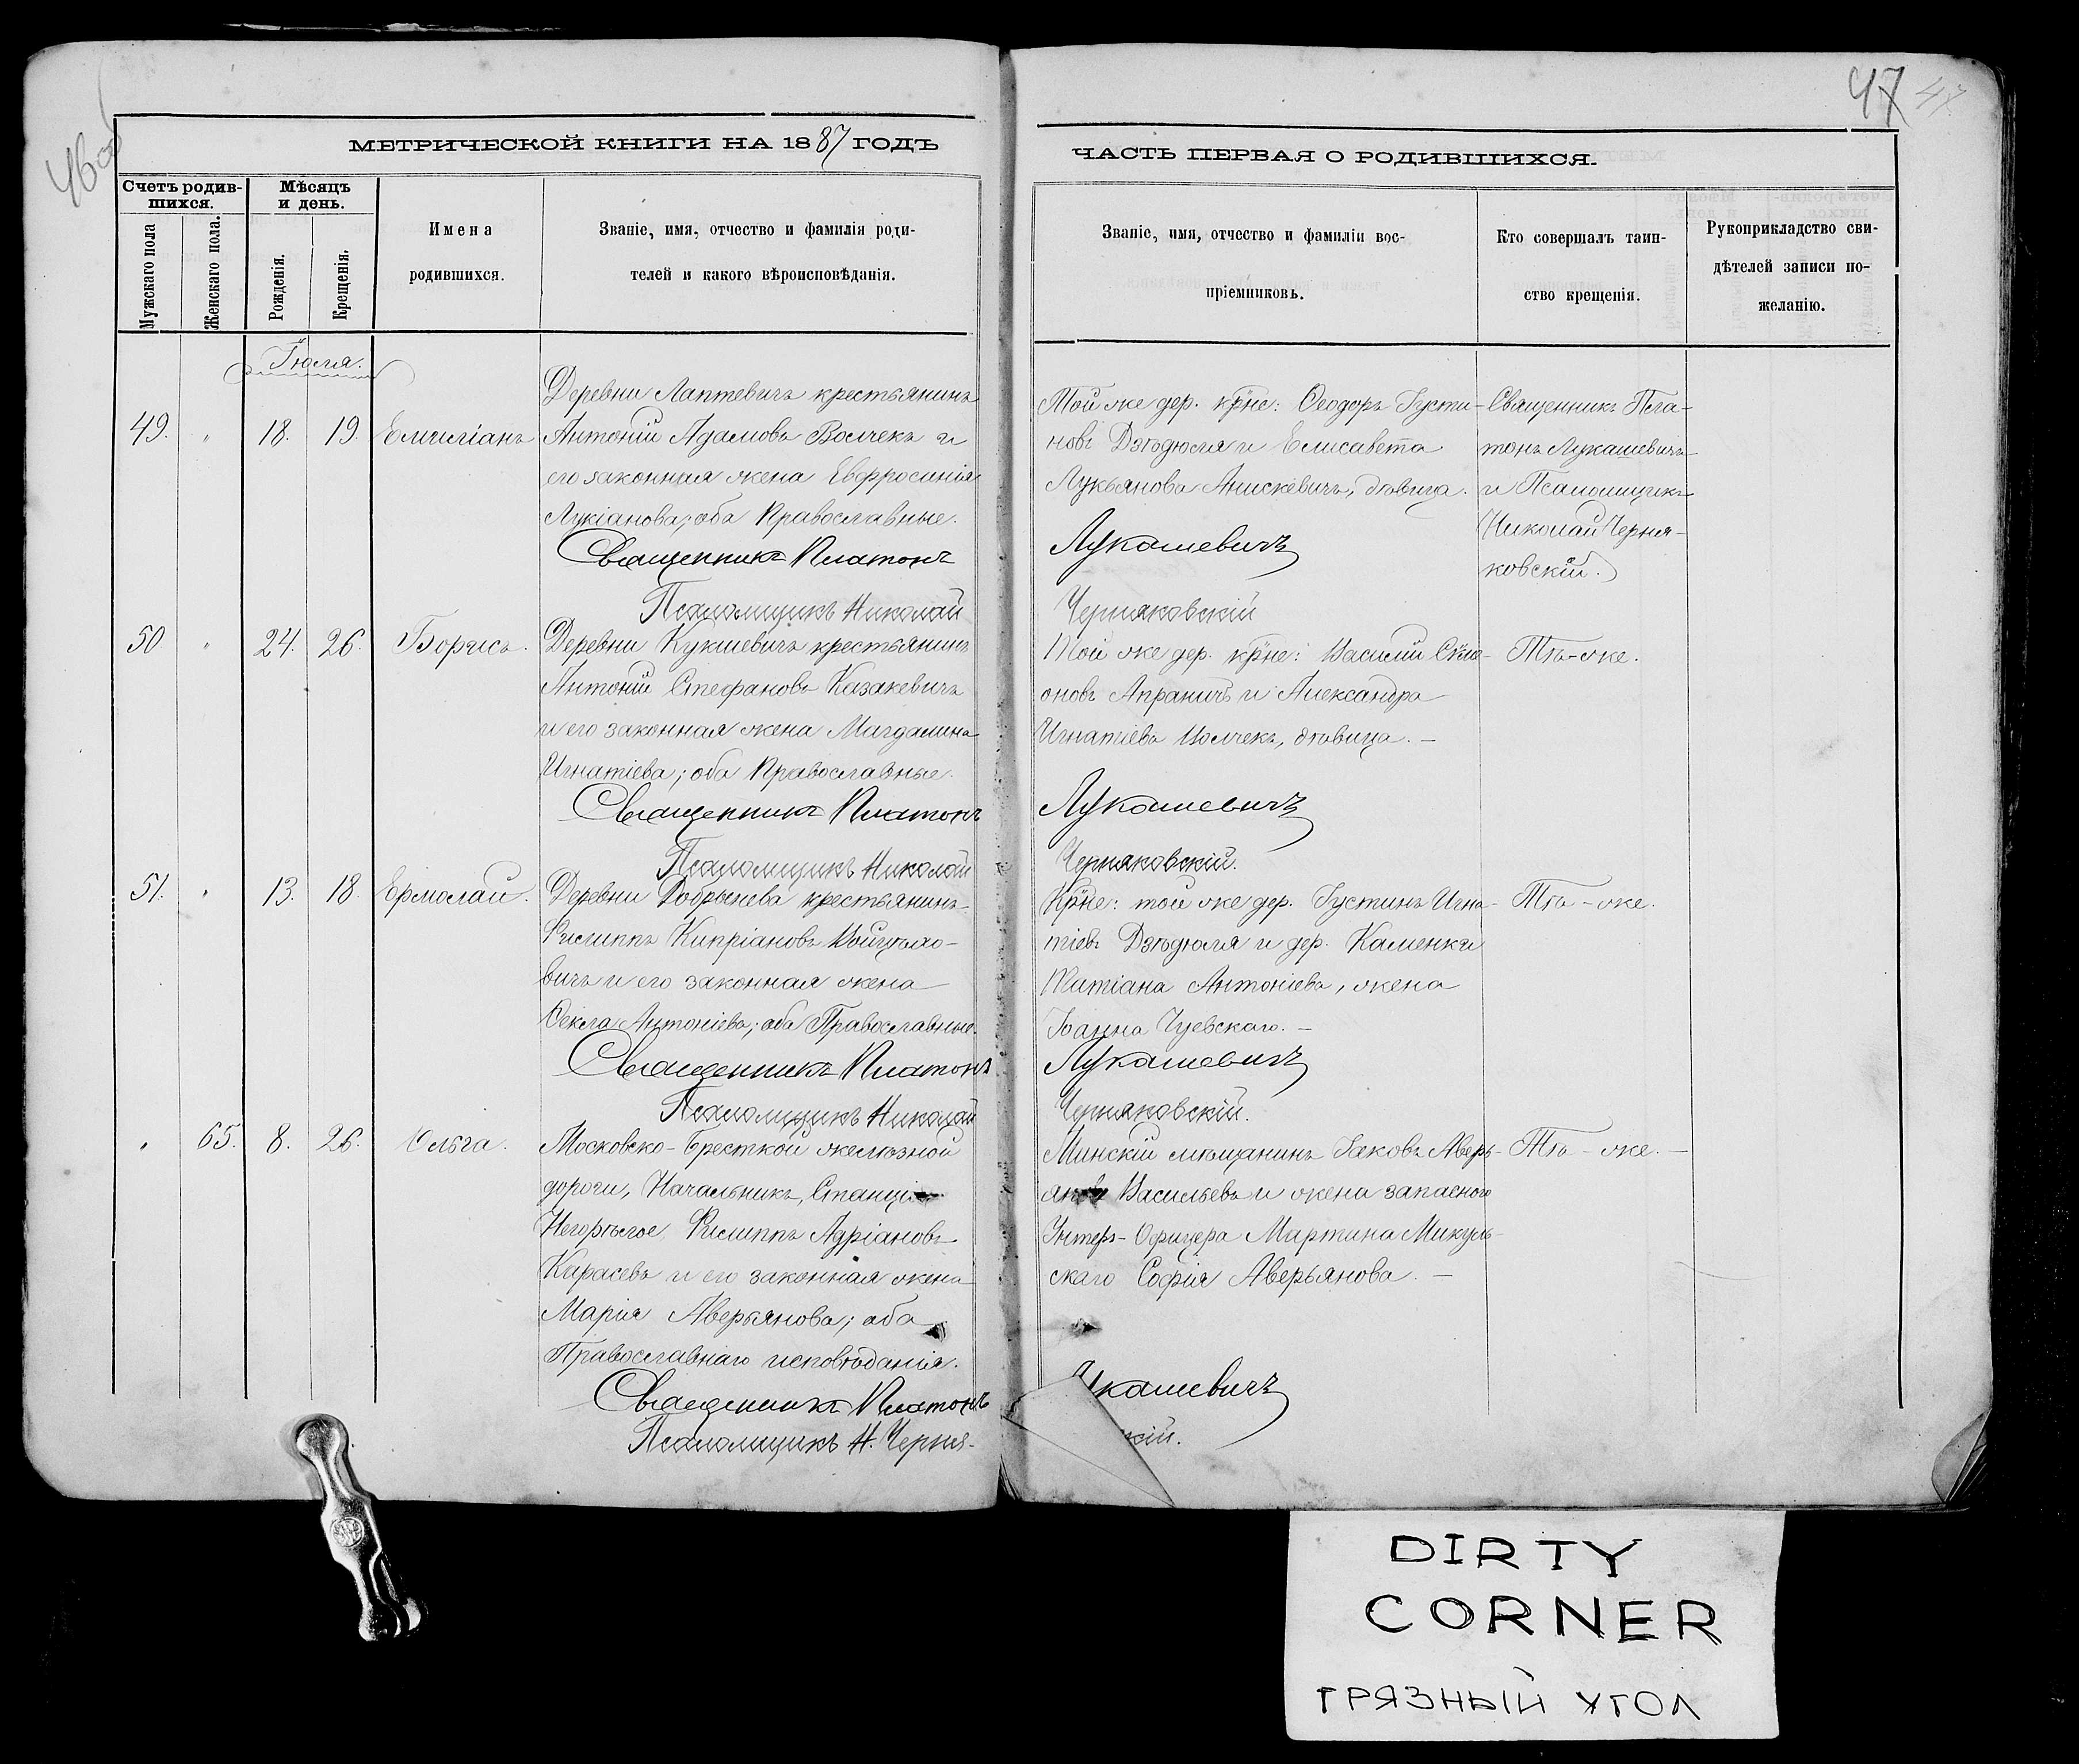 46 об
МЕТРИЧЕСКОЙ КНИГИ НА 1887 ГОДЪ
Счетъ родив-
шихся.
Мѣсяцъ
и день.
Мужскаго пола
Женскаго пола.
Рожденія.
Крещенія.
Имена
родившихся.
Званіе, имя, отчество и фамилія роди-
телей и какого вѣроисповѣданія.
Іюля.
49. " 18. 19. Емиліанъ
Деревни Лаптевичъ крестьянинъ
Антоній Адамовъ Волчекъ и
его законная жена Евфросинія
Лукіанова; оба Православные.
Священникъ Платонъ
Псаломщикъ Николай
50 " 24. 26. Борисъ.
Деревни Кукшевичъ крестьянинъ
Антоній Стефановъ Казакевичъ
и его законная жена Магдалина
Игнатіева; оба Православные.
Священникъ Платонъ
Псаломщикъ Николай
51. " 13. 18. Ермолай.
Деревни Добрынева крестьянинъ
Филиппъ Кипріановъ Войцѣхо-
вичъ и его законная жена
Ѳекла Антоніева; оба Православные.
Священникъ Платонъ
Псаломщикъ Николай
" 65. 8. 26. Ольга.
Московско-Бресткой желѣзной
дороги, Начальникъ, Станціи
Негорѣлое, Филиппъ Адріановъ
Карасевъ и его законная жена
Марія Аверьянова; оба
Православнаго исповѣданія.
Священникъ Платонъ
Псаломщикъ Н. Черня-
47 47
ЧАСТЬ ПЕРВАЯ О РОДИВШИХСЯ.
Званіе, имя, отчество и фамиліи вос-
пріемниковъ.
Кто совершалъ таин-
ство крещенія.
Рукоприкладство сви-
дѣтелей записи по-
желанію.
Той же дер. крне: Ѳеодоръ Іусти-
новъ Дзѣдюля и Елисавета
Лукьянова Анискевичъ, дѣвица.
Лукашевичъ
Черняковскій
Священникъ Пла-
тонъ Лукашевичъ
и Псаломщикъ
Николай Черня-
ковскій.
Той же дер. крне: Василій
оновъ Апраничъ и Александра
Игнатіева Волчекъ, дѣвица. —
Лукашевичъ
Черняковскій.
Тѣ-же.
Крне: той же дер. Іустинъ Игна-
тіевъ Дзѣдюля и дер. Каменки
Татіана Антоніева, жена
Іоанна Чуевскаго. —
Лукашевичъ
Черняковскій.
Тѣ-же.
Минскій мѣщанинъ Іаковъ Аверь-
яновъ Васильевъ и жена запаснаго
Унтеръ-Офицера Мартина Микуль-
скаго Софія Аверьянова. —
укашевичъ
кій.
Тѣ-же. —
DIRTY
CORNER
ГРЯЗНЫЙ УГОЛ